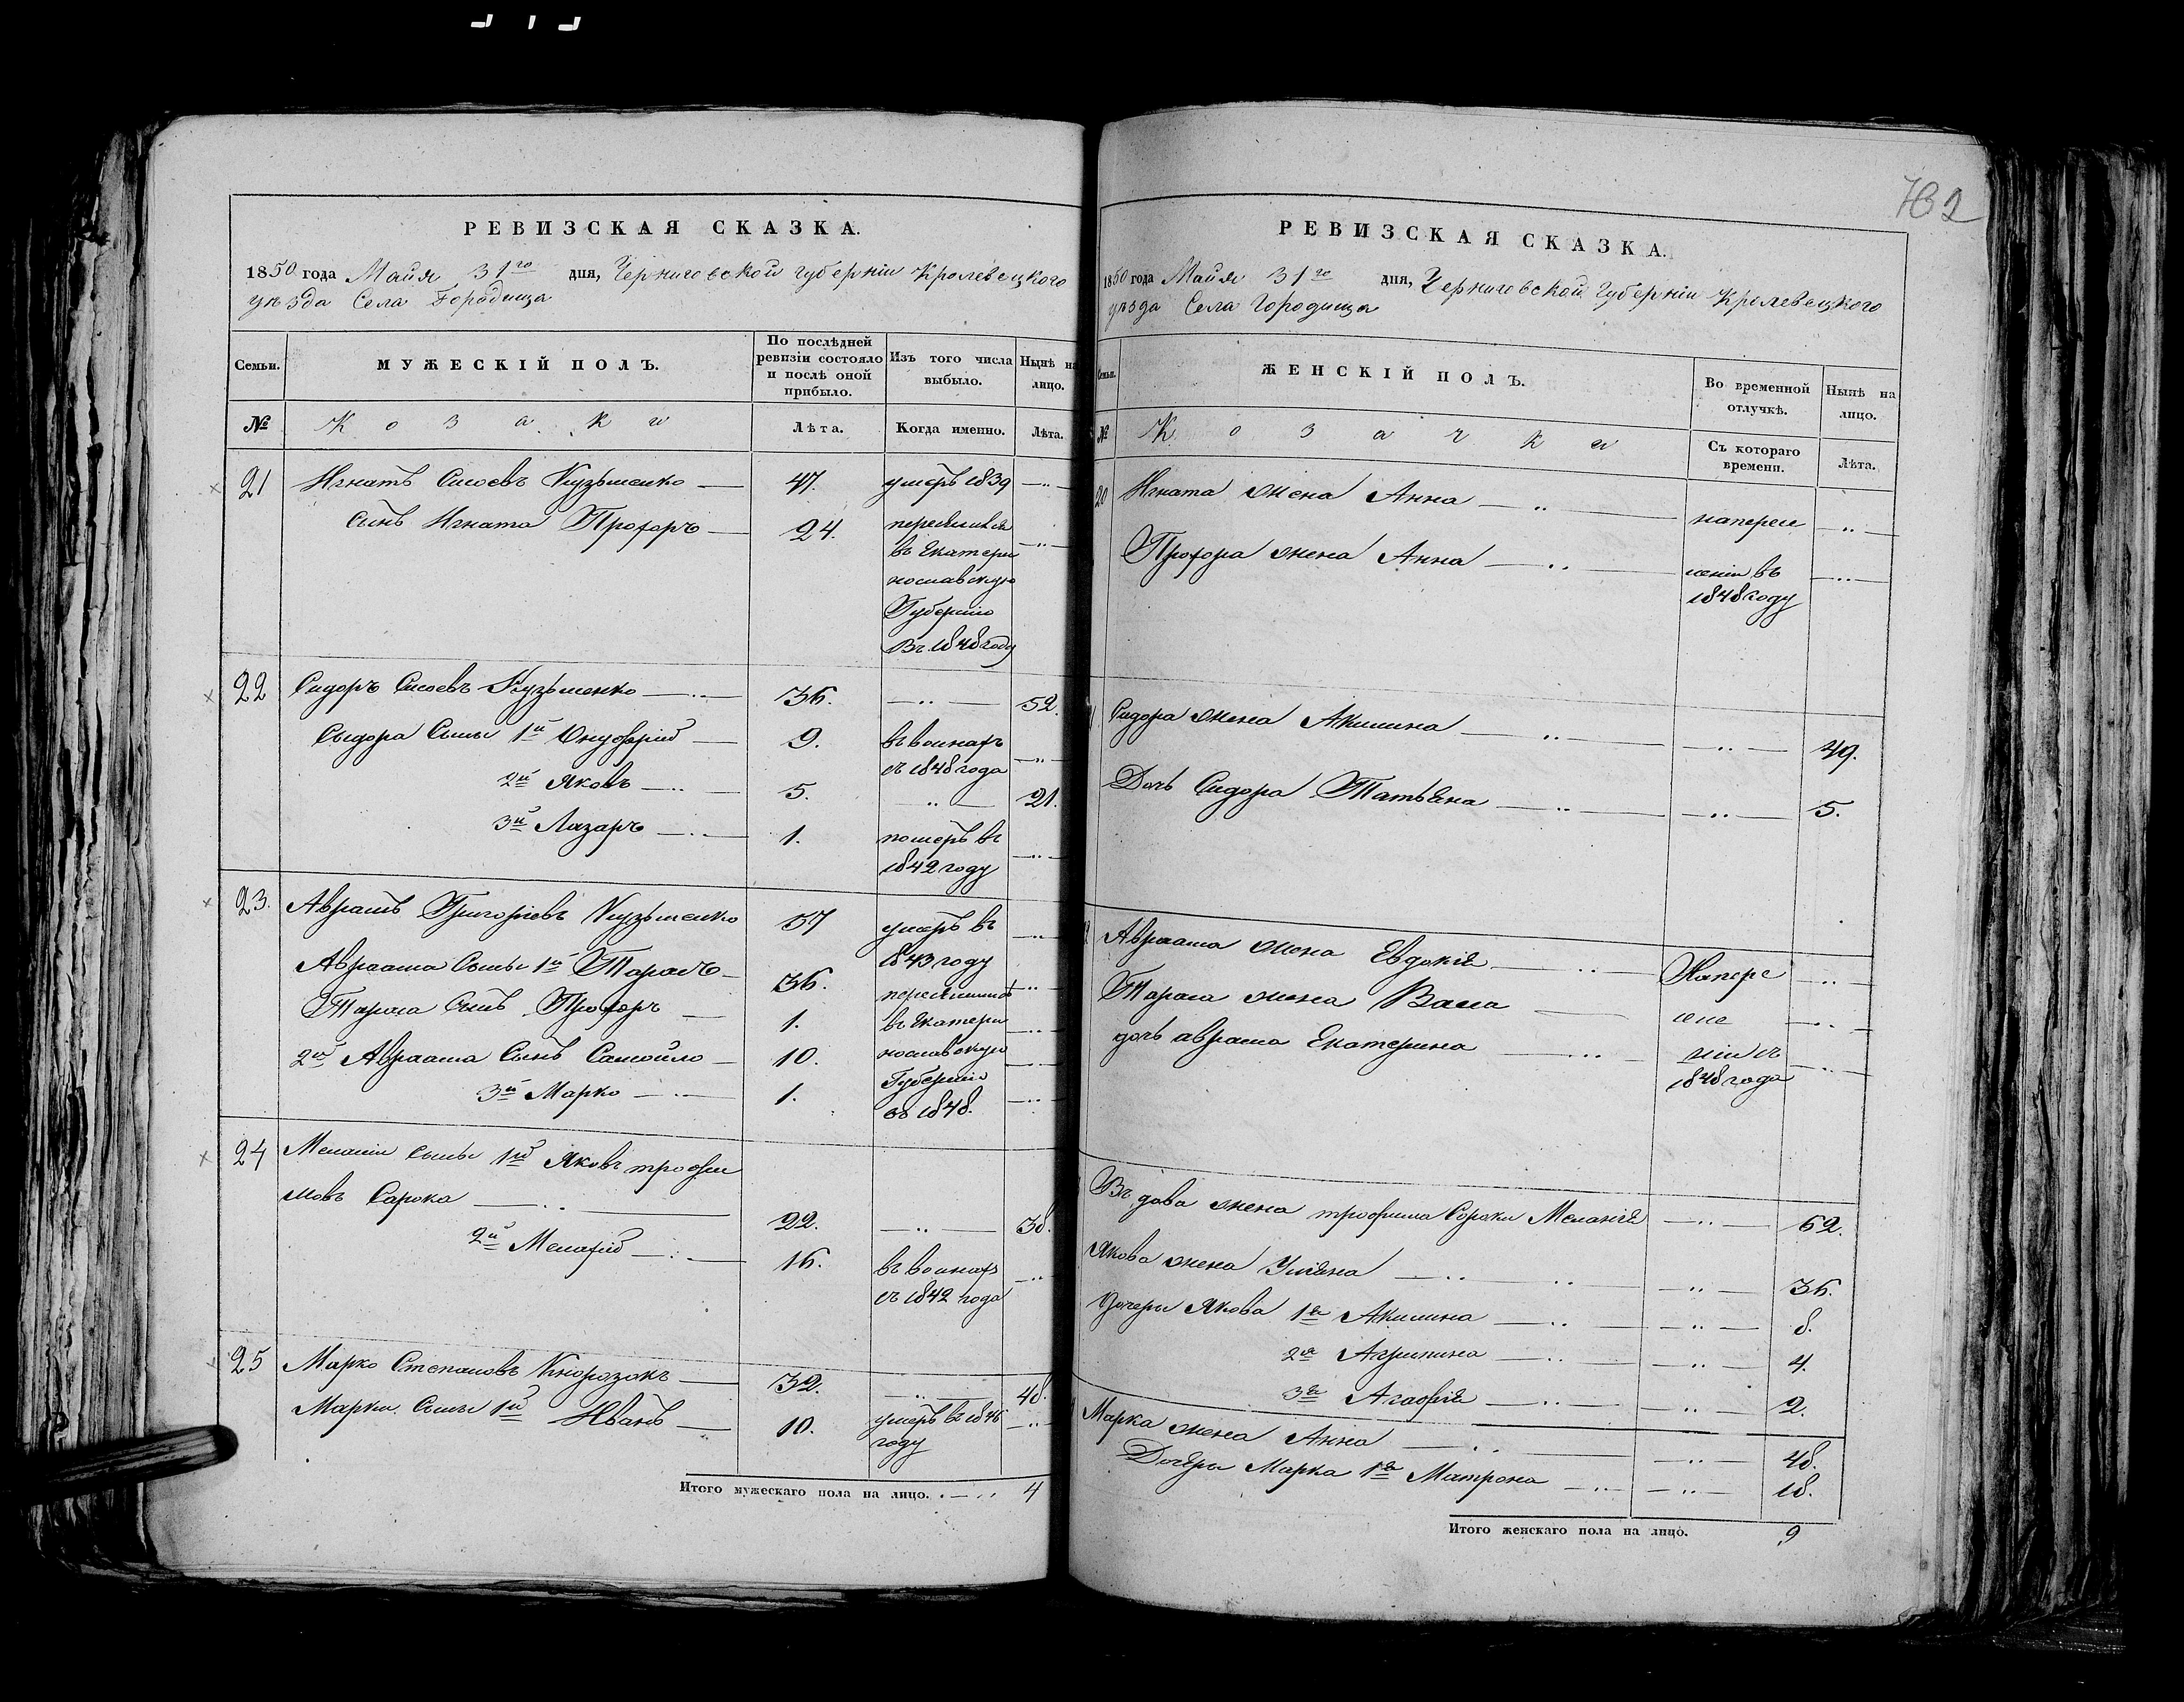 732
РЕВИЗСКАЯ СКАЗКА.
1850 года Майя 31го дня, Черниговской губерніи Кролевецкого
уѣзда Села Городища
Семьи. МУЖЕСКІЙ ПОЛЪ. По послѣдней ревизіи состояло и послѣ оной прибыло. Изъ того числа выбыло. Нынѣ на лицо.
№ Козаки Лѣта. Когда именно. Лѣта.
21 Игнатъ Сисоевъ Кузьменко 47. умеръ 1839
Сынъ Игната Прохоръ 24. переселился
въ Екатери
нославскую
Губернію
въ 1848 году
22 Сидоръ Сисоевъ Кузьменко 36. 52.
Сыдора Сыны 1й Онуфрій 9. въ воинахъ
съ 1848 года
2й Яковъ 5. 21.
3й Лазаръ 1. померъ въ
1842 году
23. Аврамъ Григоріевъ Кузьменко 57 умеръ въ
1843 году
Авраама Сыны 1й Тарасъ 36. переселились
Тараса Сынъ Прохоръ 1. въ Екатери
2й Авраама Сынъ Самойло 10. нославскую
Губернію
3й Марко 1. въ 1848.
24 Меланіи Сыны 1й Яковъ трофи
мовъ Сарока 22. 38.
2й 16. въ воинахъ
съ 1842 года
25 Марко Степановъ 32. 48.
Марки Сыны 1й Иванъ 10. умеръ въ 1846
году
Итого мужескаго пола на лицо. 4
РЕВИЗСКАЯ СКАЗКА.
1850 года Майя 31го дня, Черниговской Губерніи Кролевецкого
уѣзда Села Городища
Семьи. ЖЕНСКІЙ ПОЛЪ. Во временной отлучкѣ. Нынѣ на лицо.
№ Козачки Съ котораго времени. Лѣта.
20 Игната жена Анна напересе
Прохора жена Анна леніи въ
1848 году
Сидора жена Акилина 49.
Дочь Сидора Татьяна 5.
Авраама жена Евдокія Напере
Тараса жена Васа селе
дочь авраама Екатерина ніи съ
1848 года
Вдова жена трофима Сороки Меланія 62.
Якова жена Уліяна 36.
Дочери Якова 1я Акилина 8.
2я Агрипина 4.
3я Агафія 2.
Марка жена Анна 48.
Дочери Марка 1я Матрона 18.
Итого женскаго пола на лицо. 9